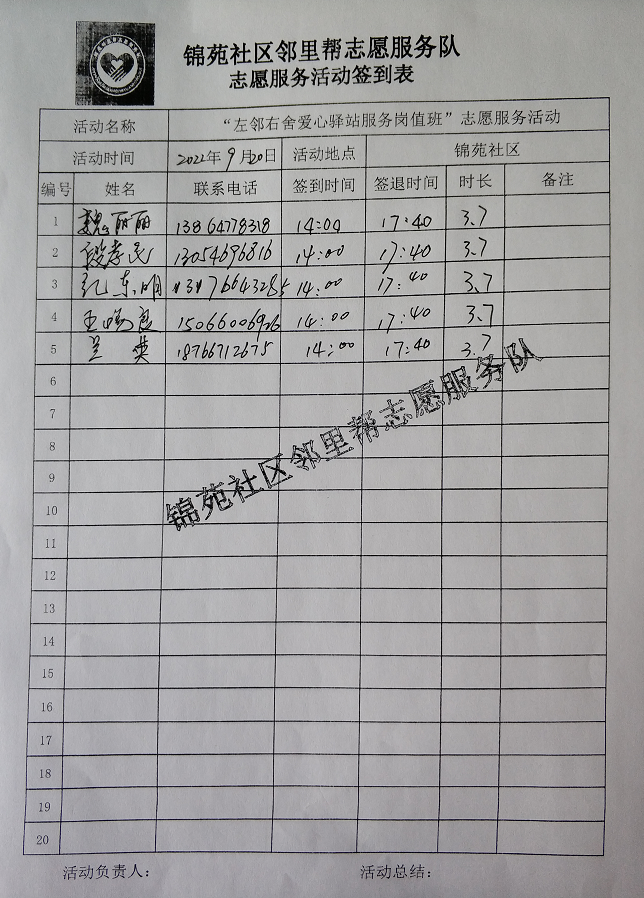 锦苑社区邻里帮志愿服务队
志愿服务活动签到表
活动名称 “左邻右舍爱心驿站服务岗值班”志愿服务活动
活动时间 2022年9月20日 活动地点 锦苑社区
编号 姓名 联系电话 签到时间 签退时间 时长 备注
1 魏丽丽 13864778318 14:00 17:40 3.7
2 段孝民 13054696816 14:00 17:40 3.7
3 纪东明 14:00 17:40 3.7
4 王 良 14:00 17:40 3.7
5 兰英 18766712675 14:00 17:40 3.7
锦苑社区邻里帮志愿服务队
6
7
8
9
10
11
12
13
14
15
16
17
18
19
20
活动负责人: 活动总结: